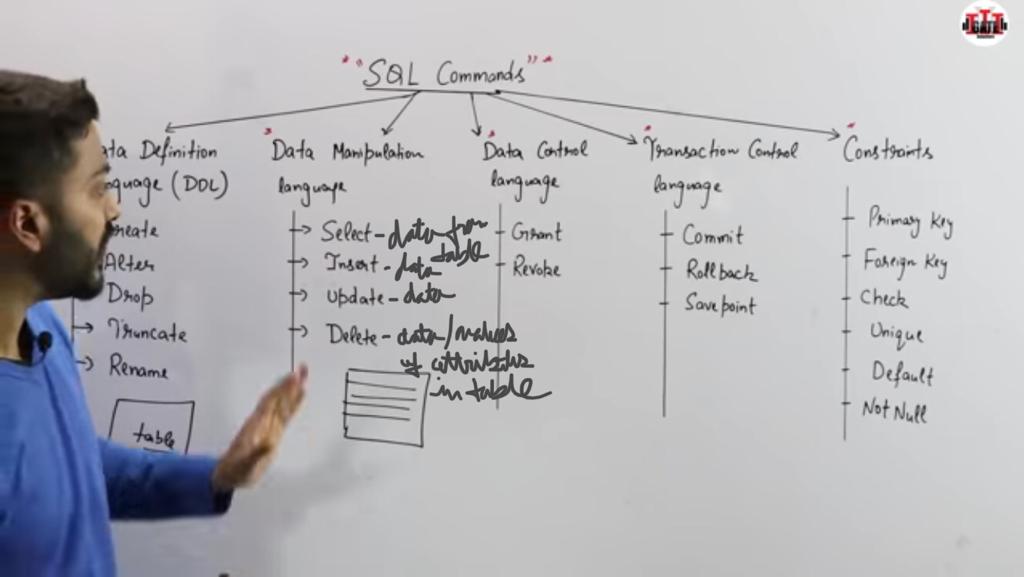 "SQL Commands"
ata Definition
nguage (DDL)
reate
Alter
Drop
Truncate
Rename
table
Data Manipulation
language
Select - data from
table
Insert - data
Update - data
Delete - data/values
of attributes
in table
Data Control
language
Grant
Revoke
Transaction Control
language
Commit
Rollback
Savepoint
Constraints
Primary Key
Foreign Key
Check
Unique
Default
Not Null
GATE